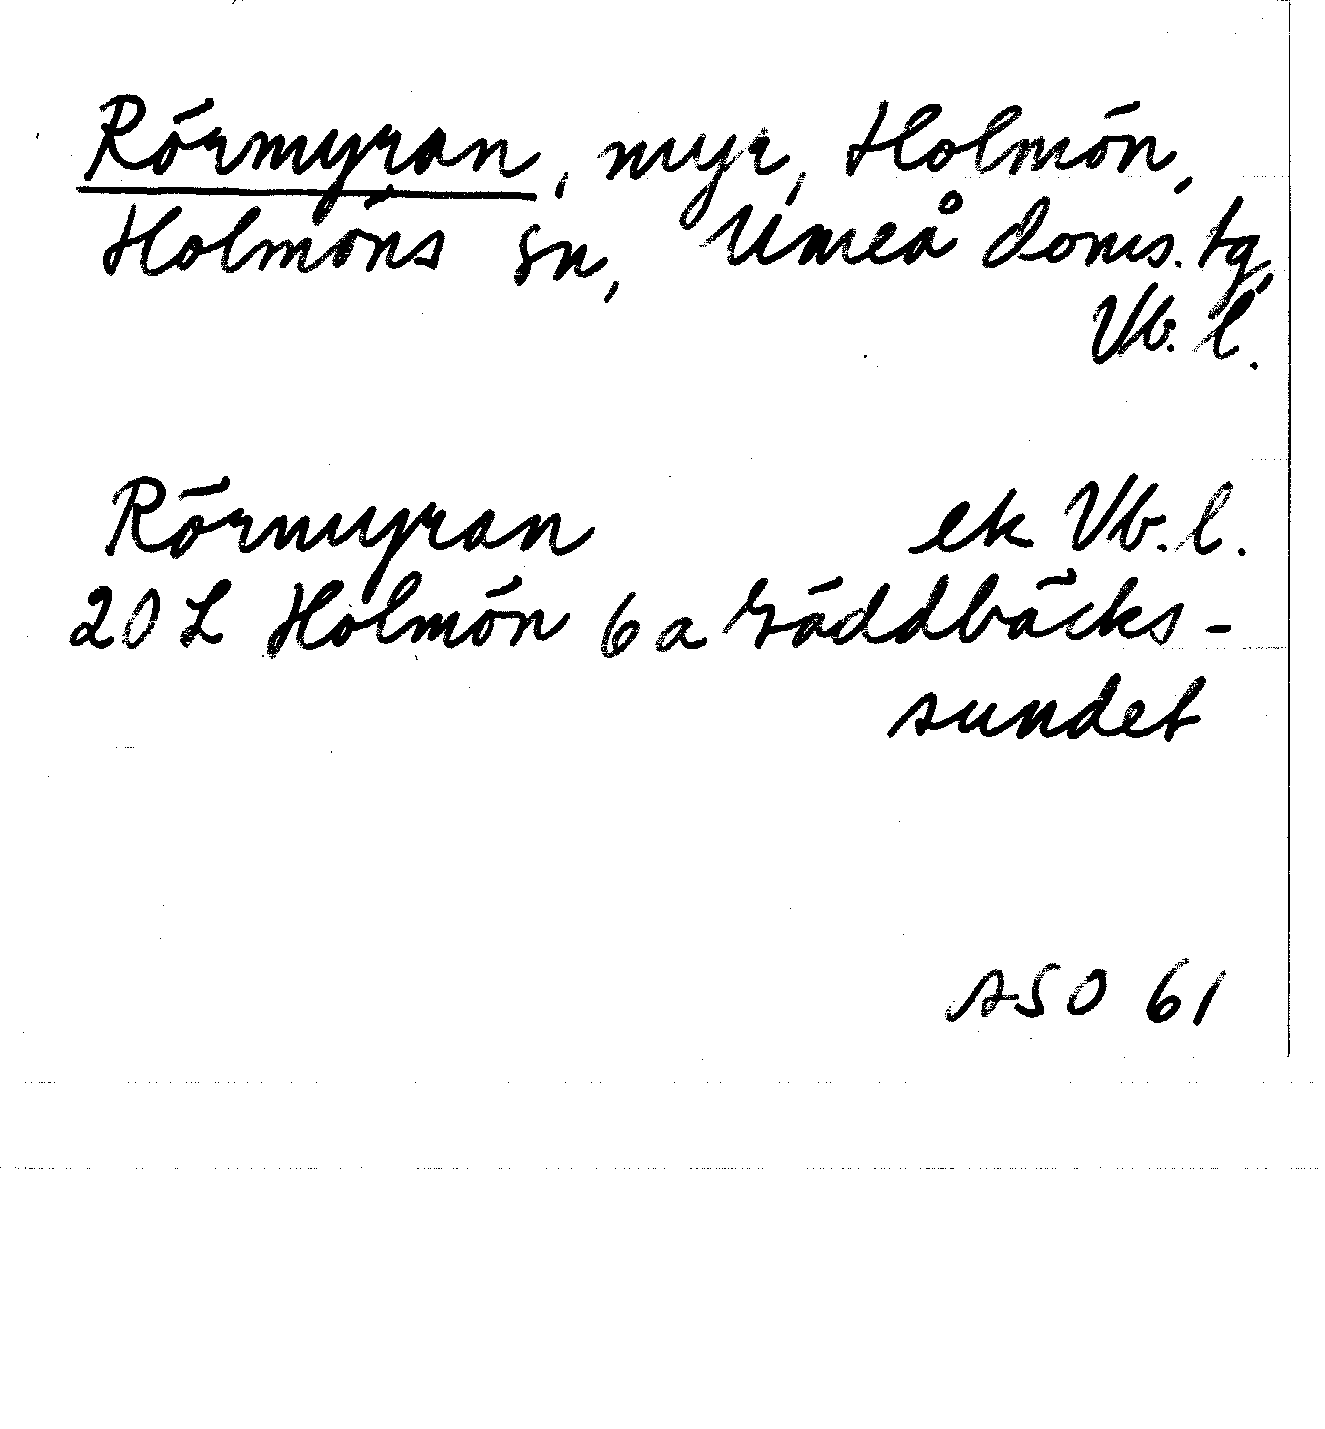 Rörmyran, myr, Holmön,
Holmöns sn, Umeå doms. tg,
Vb. l.
Rörmyran ek Vb. l.
20 L Holmön 6 a Gäddbäcks-
sundet
ASO 61